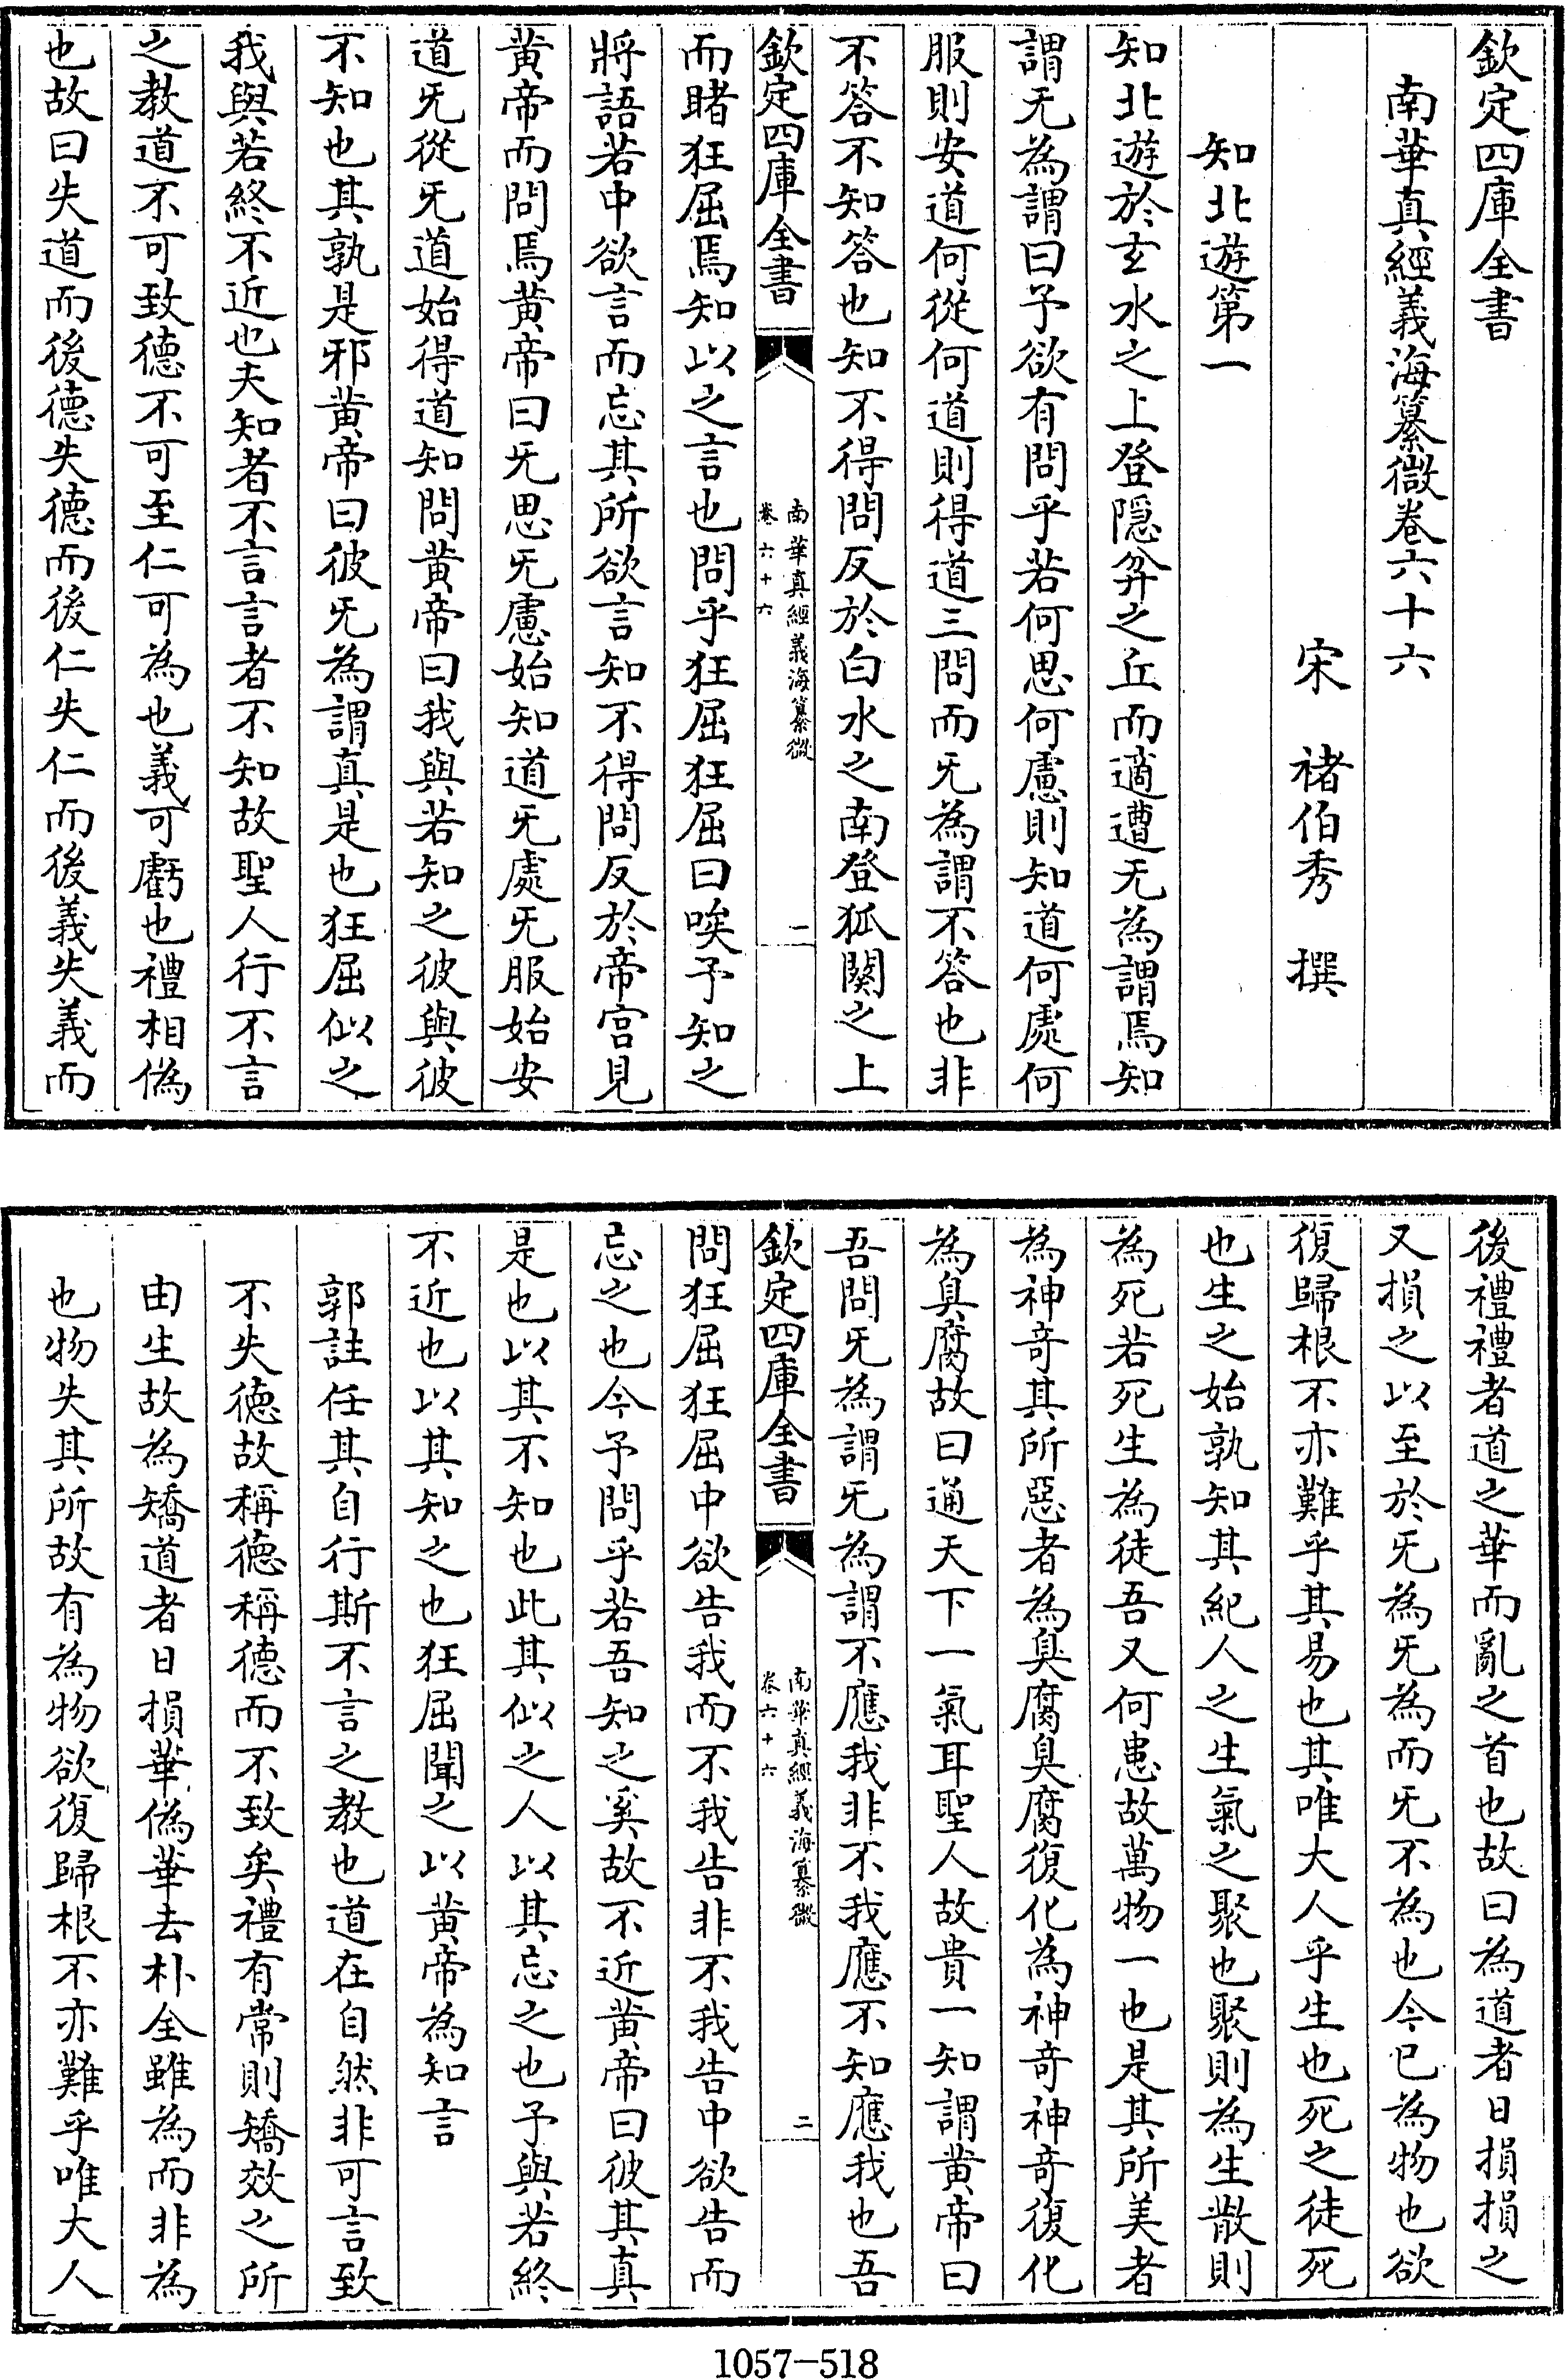 欽定四庫全書
南華真經義海纂微卷六十六
宋　褚伯秀　撰
知北遊第一
知北遊於玄水之上登隱弅之丘而適遭无為謂焉知
謂无為謂曰予欲有問乎若何思何慮則知道何處何
服則安道何從何道則得道三問而无為謂不答也非
不答不知答也知不得問反於白水之南登狐闋之上
欽定四庫全書
南華真經義海纂微
卷六十六
一
而睹狂屈焉知以之言也問乎狂屈狂屈曰唉予知之
將語若中欲言而忘其所欲言知不得問反於帝宮見
黄帝而問焉黄帝曰无思无慮始知道无處无服始安
道无從无道始得道知問黄帝曰我與若知之彼與彼
不知也其孰是邪黄帝曰彼无為謂真是也狂屈似之
我與若終不近也夫知者不言言者不知故聖人行不言
之教道不可致德不可至仁可為也義可虧也禮相偽
也故曰失道而後德失德而後仁失仁而後義失義而
後禮禮者道之華而亂之首也故曰為道者日損損之
又損之以至於无為无為而无不為也今已為物也欲
復歸根不亦難乎其易也其唯大人乎生也死之徒死
也生之始孰知其紀人之生氣之聚也聚則為生散則
為死若死生為徒吾又何患故萬物一也是其所美者
為神奇其所惡者為臭腐臭腐復化為神奇神奇復化
為臭腐故曰通天下一氣耳聖人故貴一知謂黄帝曰
吾問无為謂无為謂不應我非不我應不知應我也吾
欽定四庫全書
南華真經義海纂微
卷六十六
二
問狂屈狂屈中欲告我而不我告非不我告中欲告而
忘之也今予問乎若吾知之奚故不近黄帝曰彼其真
是也以其不知也此其似之人以其忘之也予與若終
不近也以其知之也狂屈聞之以黄帝為知言
郭註任其自行斯不言之教也道在自然非可言致
不失德故稱德稱德而不致矣禮有常則矯效之所
由生故為矯道者日損華偽華去朴全雖為而非為
也物失其所故有為物欲復歸根不亦難乎唯大人
1057-518